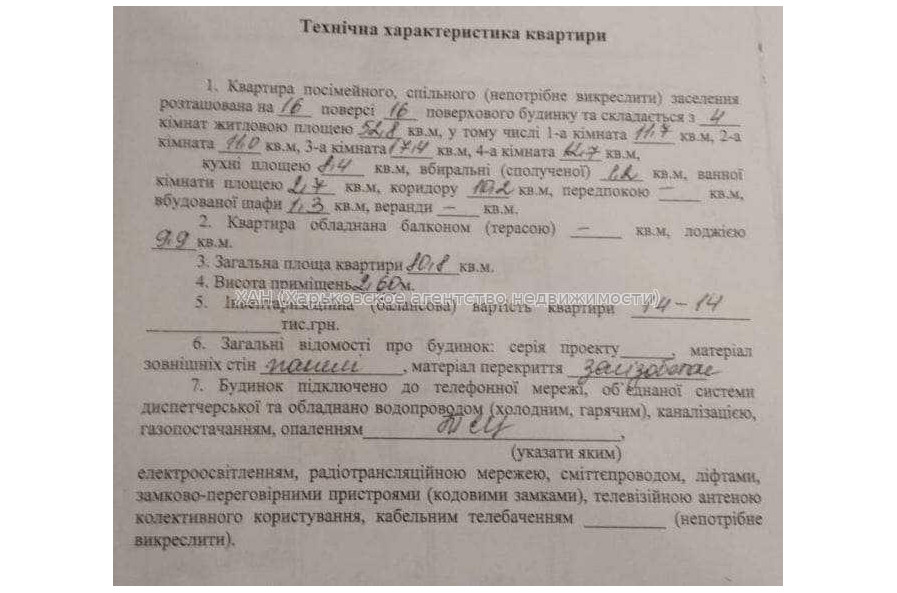 Технічна характеристика квартири
1. Квартира посімейного, спільного (непотрібне викреслити) заселення
розташована на 16 поверсі 16 поверхового будинку та складається з 4
кімнат житловою площею 52,8 кв.м, у тому числі 1-а кімната 11,7 кв.м, 2-а
кімната 11,0 кв.м, 3-а кімната 17,4 кв.м, 4-а кімната 12,7 кв.м,
кухні площею 8,4 кв.м, вбиральні (сполученої) 1,2 кв.м, ванної
кімнати площею 2,7 кв.м, коридору 10,2 кв.м, передпокою — кв.м,
вбудованої шафи 1,3 кв.м, веранди — кв.м.
2. Квартира обладнана балконом (терасою) — кв.м, лоджією
9,9 кв.м.
3. Загальна площа квартири 80,8 кв.м.
4. Висота приміщень 2,60 м.
ХАН (Харьковское агентство недвижимости)
5. Інвентаризаційна (балансова) вартість квартири 14-14
тис.грн.
6. Загальні відомості про будинок: серія проекту____, матеріал
зовнішніх стін панелі, матеріал перекриття залізобетон
7. Будинок підключено до телефонної мережі, об'єднаної системи
диспетчерської та обладнано водопроводом (холодним, гарячим), каналізацією,
газопостачанням, опаленням ТЕЦ,
(указати яким)
електроосвітленням, радіотрансляційною мережею, сміттєпроводом, ліфтами,
замково-переговірними пристроями (кодовими замками), телевізійною антеною
колективного користування, кабельним телебаченням ________ (непотрібне
викреслити).